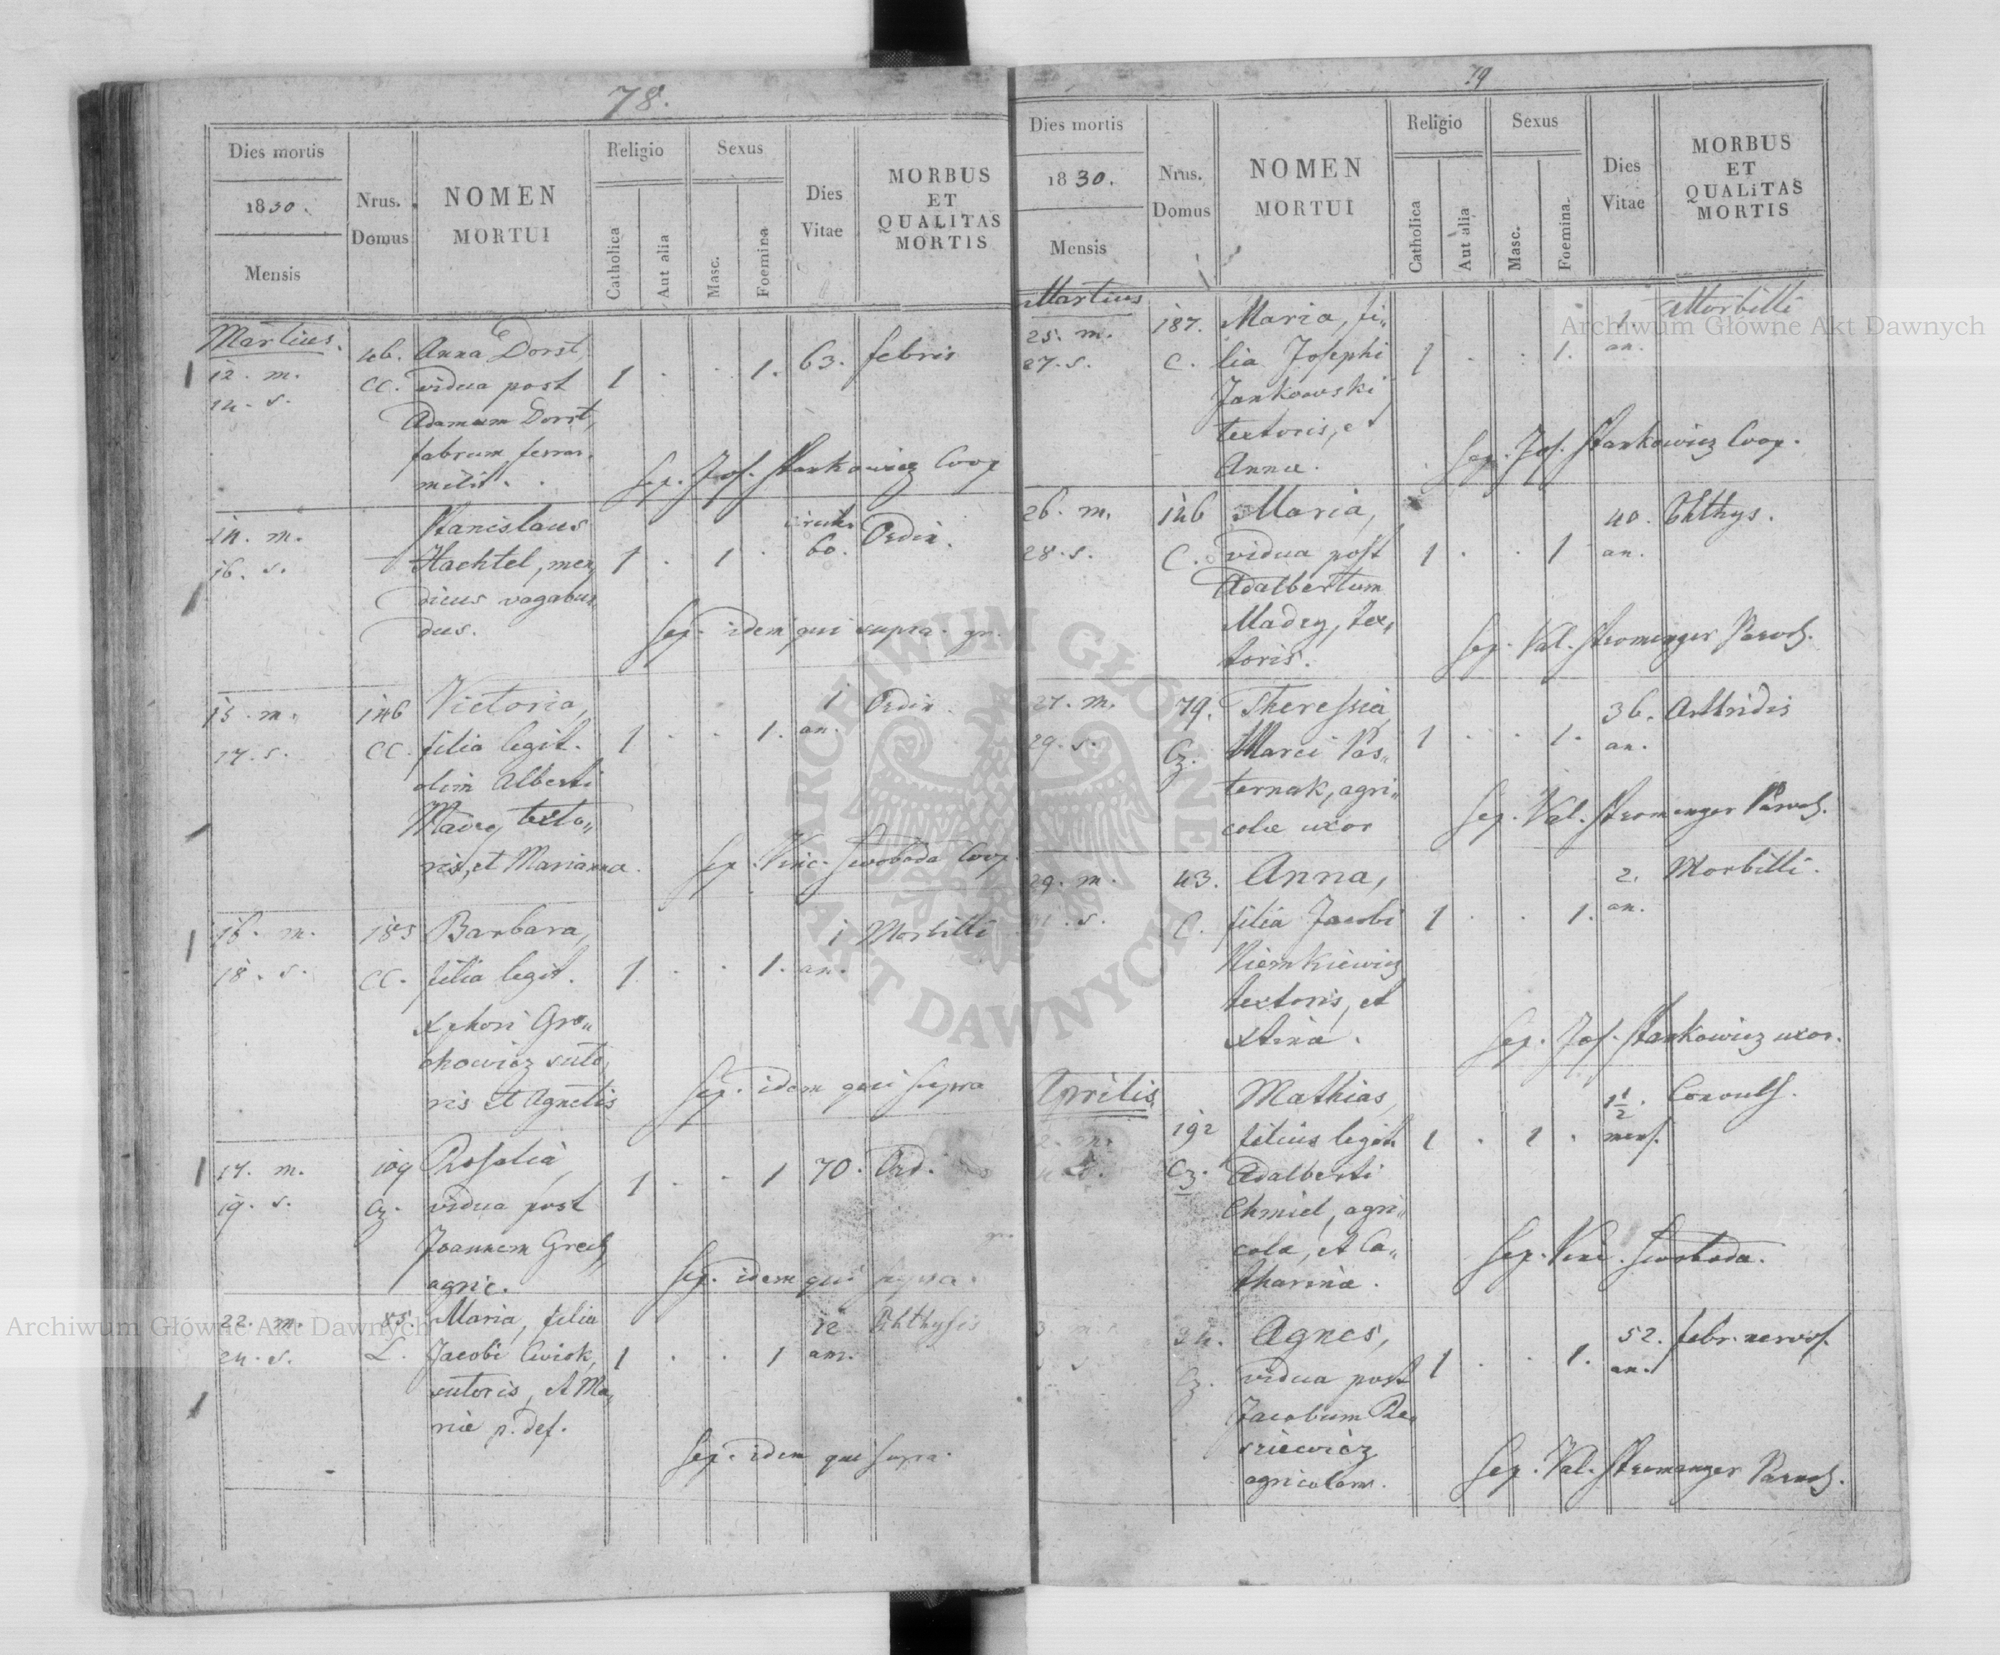 78.
Dies mortis
1830.
Mensis
Nrus.
Domus
NOMEN
MORTUI
Religio
Catholica
Aut alia
Sexus
Masc.
Foemina
Dies
Vitae
MORBUS
ET
QUALITAS
MORTIS
Martius.
12. m.
14. s.
46.
CC.
Anna Dorst,
vidua post
Adamum Dorst,
fabrum ferrar.
1 . . 1. 63. febris
Sep. Jos. Stankowicz Coop
14. m.
16. s.
Stanislaus
Hachtel, men„
dicus vagabun
dus.
1 . 1 . circiter
60. Ordin.
Sep. idem qui supra.
15. m.
17. s.
146
CC.
Victoria,
filia legit.
olim Alberti
Madey texto„
ris, et Marianna.
1 . . 1. 1
an. Ordin.
Sep. Vinc. Swoboda Coop.
16. m.
18. s.
185
CC.
Barbara,
filia legit.
Xphori Gro„
chowicz suto„
ris et Agnetis
1 . . 1. 1
an. Morbilli
Sep. idem qui supra
17. m.
19. s.
109
Cz.
Rosalia,
vidua post
Joannem
agric.
1 . . 1 70. Ord.
Sep. idem qui supra.
22. m.
24. s.
85.
L.
Maria, filia
Jacobi Cwiok,
sutoris, et Ma„
riæ p. def.
1 . . 1 12
an. Phthysis
Sep. idem qui supra.
79
Dies mortis
1830.
Mensis
Nrus.
Domus
NOMEN
MORTUI
Religio
Catholica
Aut alia
Sexus
Masc.
Foemina.
Dies
Vitae
MORBUS
ET
QUALITAS
MORTIS
Martius
25. m.
27. s.
187.
C.
Maria, fi„
lia Josephi
Jankowski
textoris, et
Annæ.
1 . . 1. 1.
an. Morbilli
Sep. Jos. Stankowicz Coop.
26. m.
28. s.
146
C.
Maria,
vidua post
Adalbertum
Madey, tex„
toris.
1 . . 1 40.
an. Phthys.
Sep. Val. Stromenger Paroch.
27. m.
29. s.
79.
Cz.
Theressia,
Marci Pas„
ternak, agri„
colæ uxor
1 . . 1. 36.
an. Arthridis
Sep. Val. Stromenger Paroch.
29. m.
31. s.
43.
C.
Anna,
filia Jacobi
Niemkiewicz
textoris, et
Xtina.
1 . . 1. 2.
an. Morbilli.
Sep. Jos. Stankowicz
Aprilis
2. m.
192
Cz.
Mathias,
filius legit.
Adalberti
Chmiel, agri„
cola, et Ca„
tharina.
1 . 1 . 1½.
mens. Convuls.
Sep. Vinc. Swoboda.
3. m.
s
24.
Cz.
Agnes,
vidua post
Jacobum
agricolam.
1 . . 1. 52.
an. febr. nervos.
Sep. Val. Stromenger Paroch.
Archiwum Główne Akt Dawnych
Archiwum Główne Akt Dawnych
ARCHIWUM GŁÓWNE AKT DAWNYCH